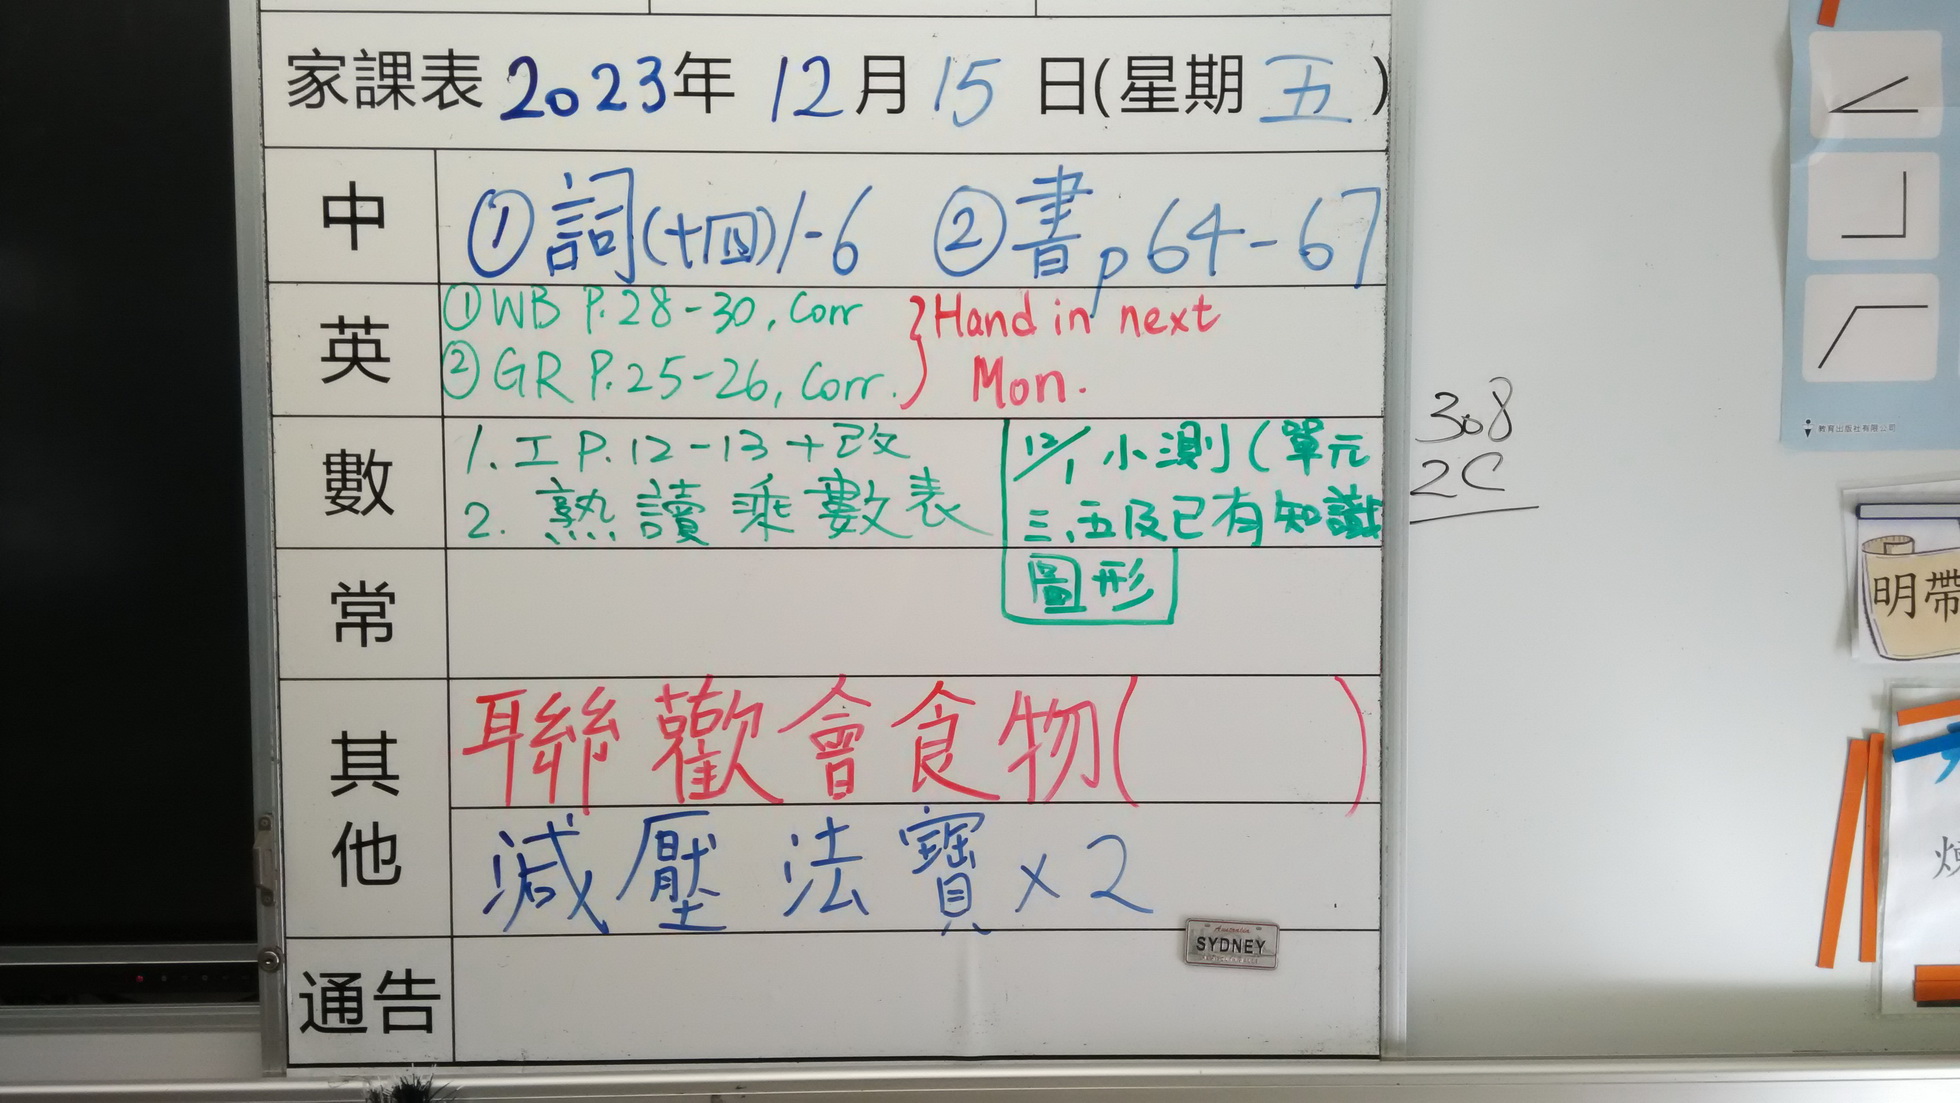 家課表 2023年 12月 15日(星期五)
中
①詞(十四)1-6 ②書p64-67
英
①WB P.28-30, Corr
②GR P.25-26, Corr.
}Hand in next
Mon.
數
1. 工 P.12-13+改
2. 熟讀乘數表
12/1 小測(單元
三、五及已有知識
圖形
常
其他
聯歡會食物( )
減壓法寶x2
通告
Australia
SYDNEY
308
2C
教育出版社有限公司
明帶